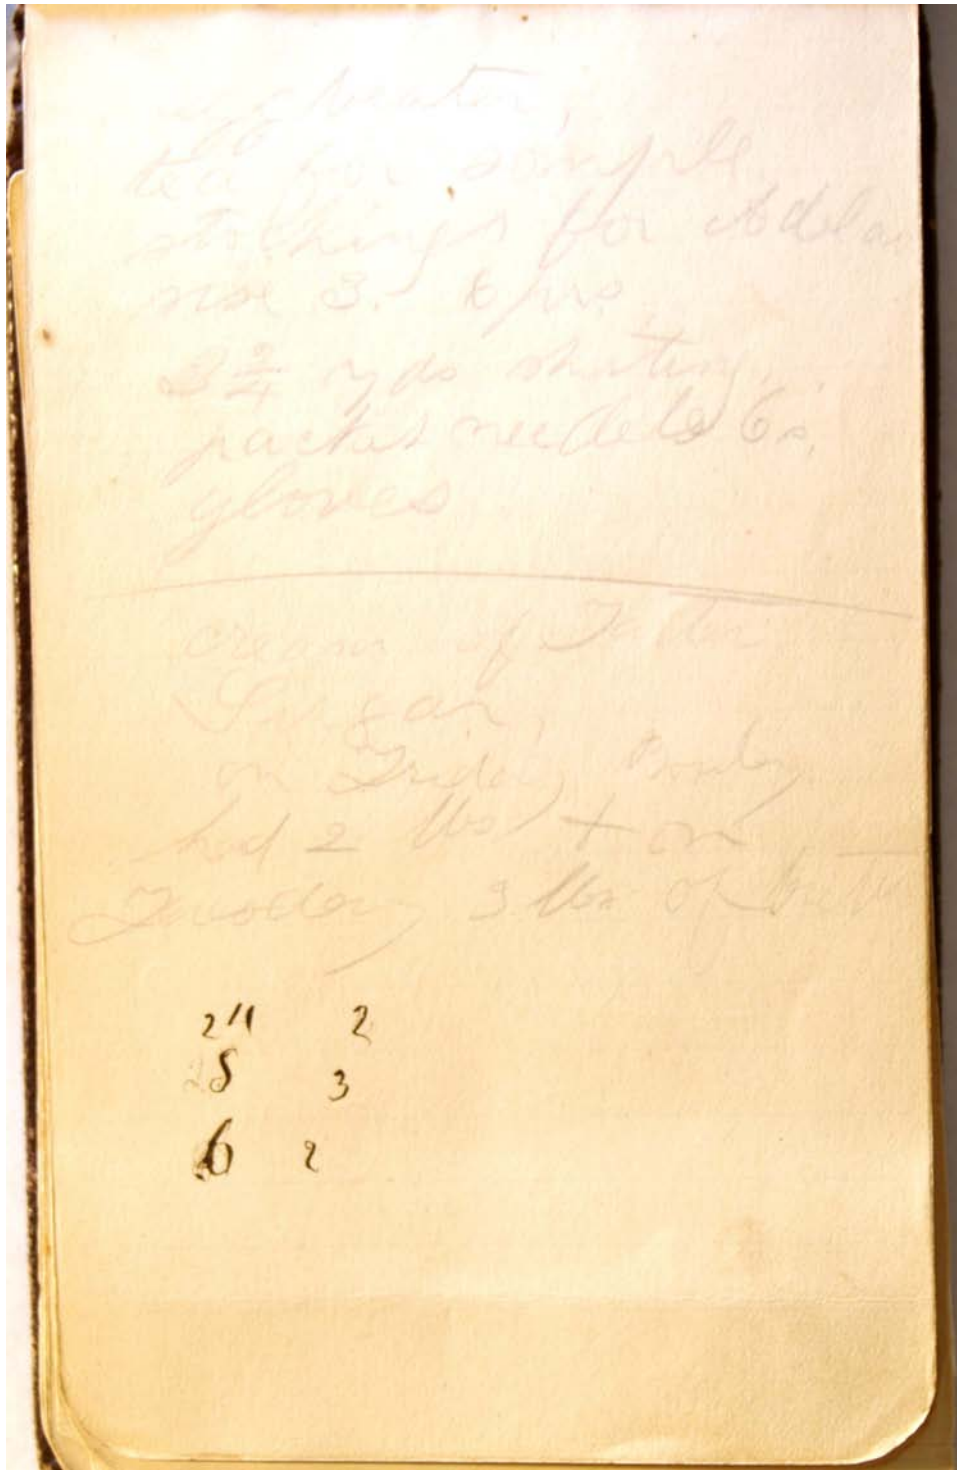 egg beater,
tea for sample
stockings for Adelai
size 3. 6 prs.
3 3/4 yds shirting,
packet needels 6s.
gloves
cream of Tarter
Sugar,
on Friday
had 2 lbs + on
Tuesday 3 lbs of butter
24 2
28 3
6 2